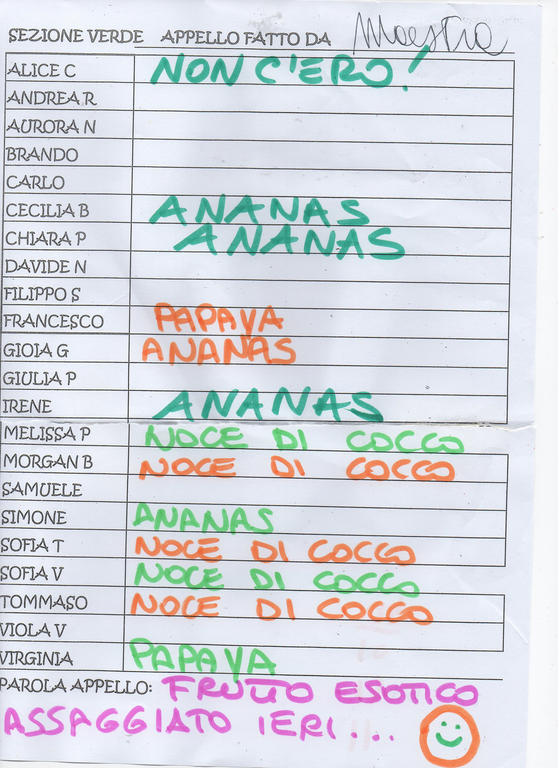 SEZIONE VERDE APPELLO FATTO DA Maestra
ALICE C NON C'ERO!
ANDREA R
AURORA N
BRANDO
CARLO
CECILIA B ANANAS
CHIARA P ANANAS
DAVIDE N
FILIPPO S
FRANCESCO PAPAYA
GIOIA G ANANAS
GIULIA P
IRENE ANANAS
MELISSA P NOCE DI COCCO
MORGAN B NOCE DI COCCO
SAMUELE
SIMONE ANANAS
SOFIA T NOCE DI COCCO
SOFIA V NOCE DI COCCO
TOMMASO NOCE DI COCCO
VIOLA V
VIRGINIA PAPAYA
PAROLA APPELLO: FRUTTO ESOTICO
ASSAGGIATO IERI...